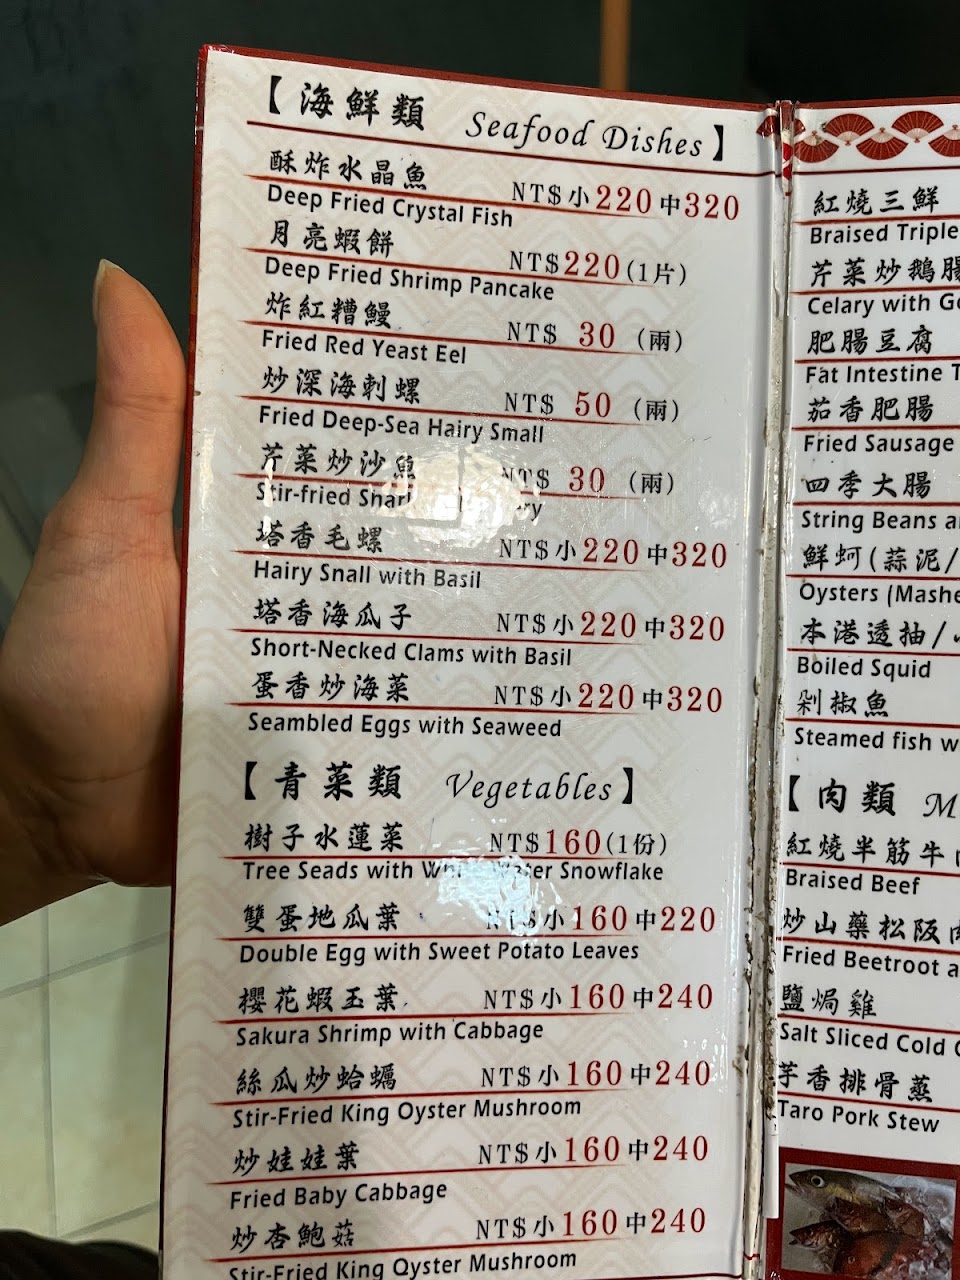 【海鮮類 Seafood Dishes】
酥炸水晶魚 NT$小220中320
Deep Fried Crystal Fish
月亮蝦餅 NT$220(1片)
Deep Fried Shrimp Pancake
炸紅糟鰻 NT$ 30 (兩)
Fried Red Yeast Eel
炒深海刺螺 NT$ 50 (兩)
Fried Deep-Sea Hairy Small
芹菜炒沙魚 NT$ 30 (兩)
Stir-fried
塔香毛螺 NT$小220中320
Hairy Snall with Basil
塔香海瓜子 NT$小220中320
Short-Necked Clams with Basil
蛋香炒海菜 NT$小220中320
Seambled Eggs with Seaweed
【青菜類 Vegetables】
樹子水蓮菜 NT$160(1份)
Tree Seads with White Water Snowflake
雙蛋地瓜葉 NT$小160中220
Double Egg with Sweet Potato Leaves
櫻花蝦玉葉 NT$小160中240
Sakura Shrimp with Cabbage
絲瓜炒蛤蠣 NT$小160中240
Stir-Fried King Oyster Mushroom
炒娃娃葉 NT$小160中240
Fried Baby Cabbage
炒杏鮑菇 NT$小160中240
Stir-Fried King Oyster Mushroom
紅燒三鮮
Braised Triple
芹菜炒鵝腸
Celary with
肥腸豆腐
Fat Intestine
茄香肥腸
Fried Sausage
四季大腸
String Beans
鮮蚵(蒜泥/
Oysters (Mashe
本港透抽/
Boiled Squid
剁椒魚
Steamed fish
【肉類
紅燒半筋牛肉
Braised Beef
炒山藥松阪肉
Fried Beetroot
鹽焗雞
Salt Sliced Cold
芋香排骨蒸
Taro Pork Stew